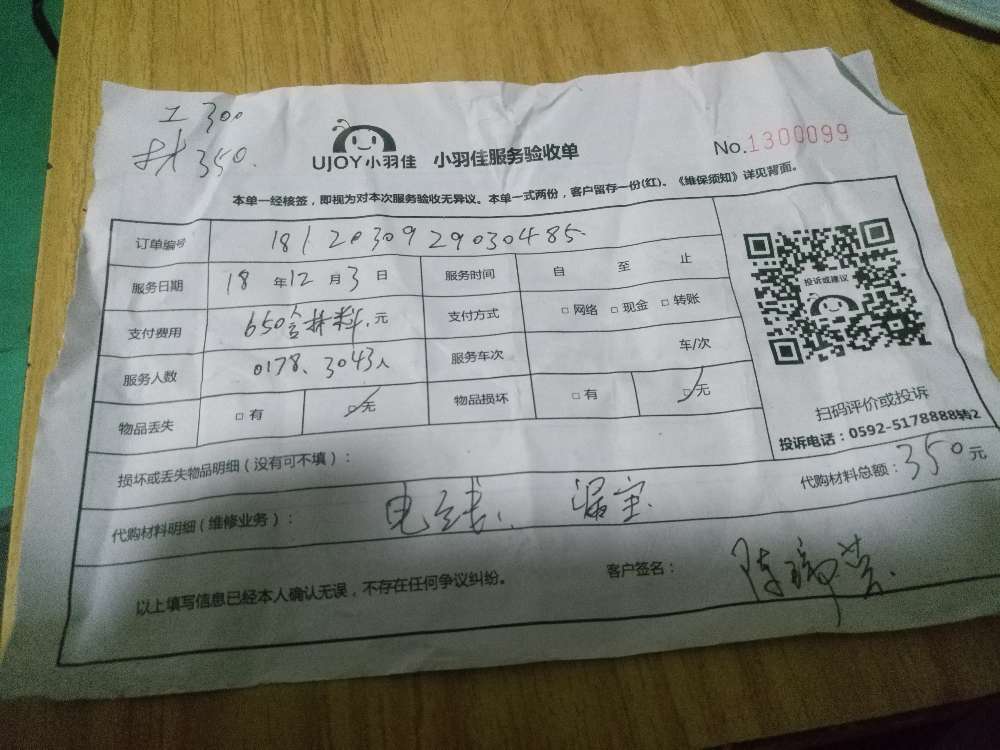 工 300
材 350.
UJOY小羽佳 小羽佳服务验收单
No.1300099
本单一经核签，即视为对本次服务验收无异议。本单一式两份，客户留存一份(红)。《维保须知》详见背面。
订单编号 1812030929030485
服务日期 18 年 12 月 3 日 服务时间 自 至 止
支付费用 650含材料. 元 支付方式 □ 网络 □ 现金 □ 转账
服务人数 0178、3043人 服务车次 车/次
物品丢失 □ 有 □ 无 物品损坏 □ 有 □ 无
投诉或建议
扫码评价或投诉
投诉电话：0592-5178888转2
损坏或丢失物品明细（没有可不填）：
代购材料明细（维修业务）： 电线. 漏宝. 代购材料总额：350元
以上填写信息已经本人确认无误，不存在任何争议纠纷。 客户签名：